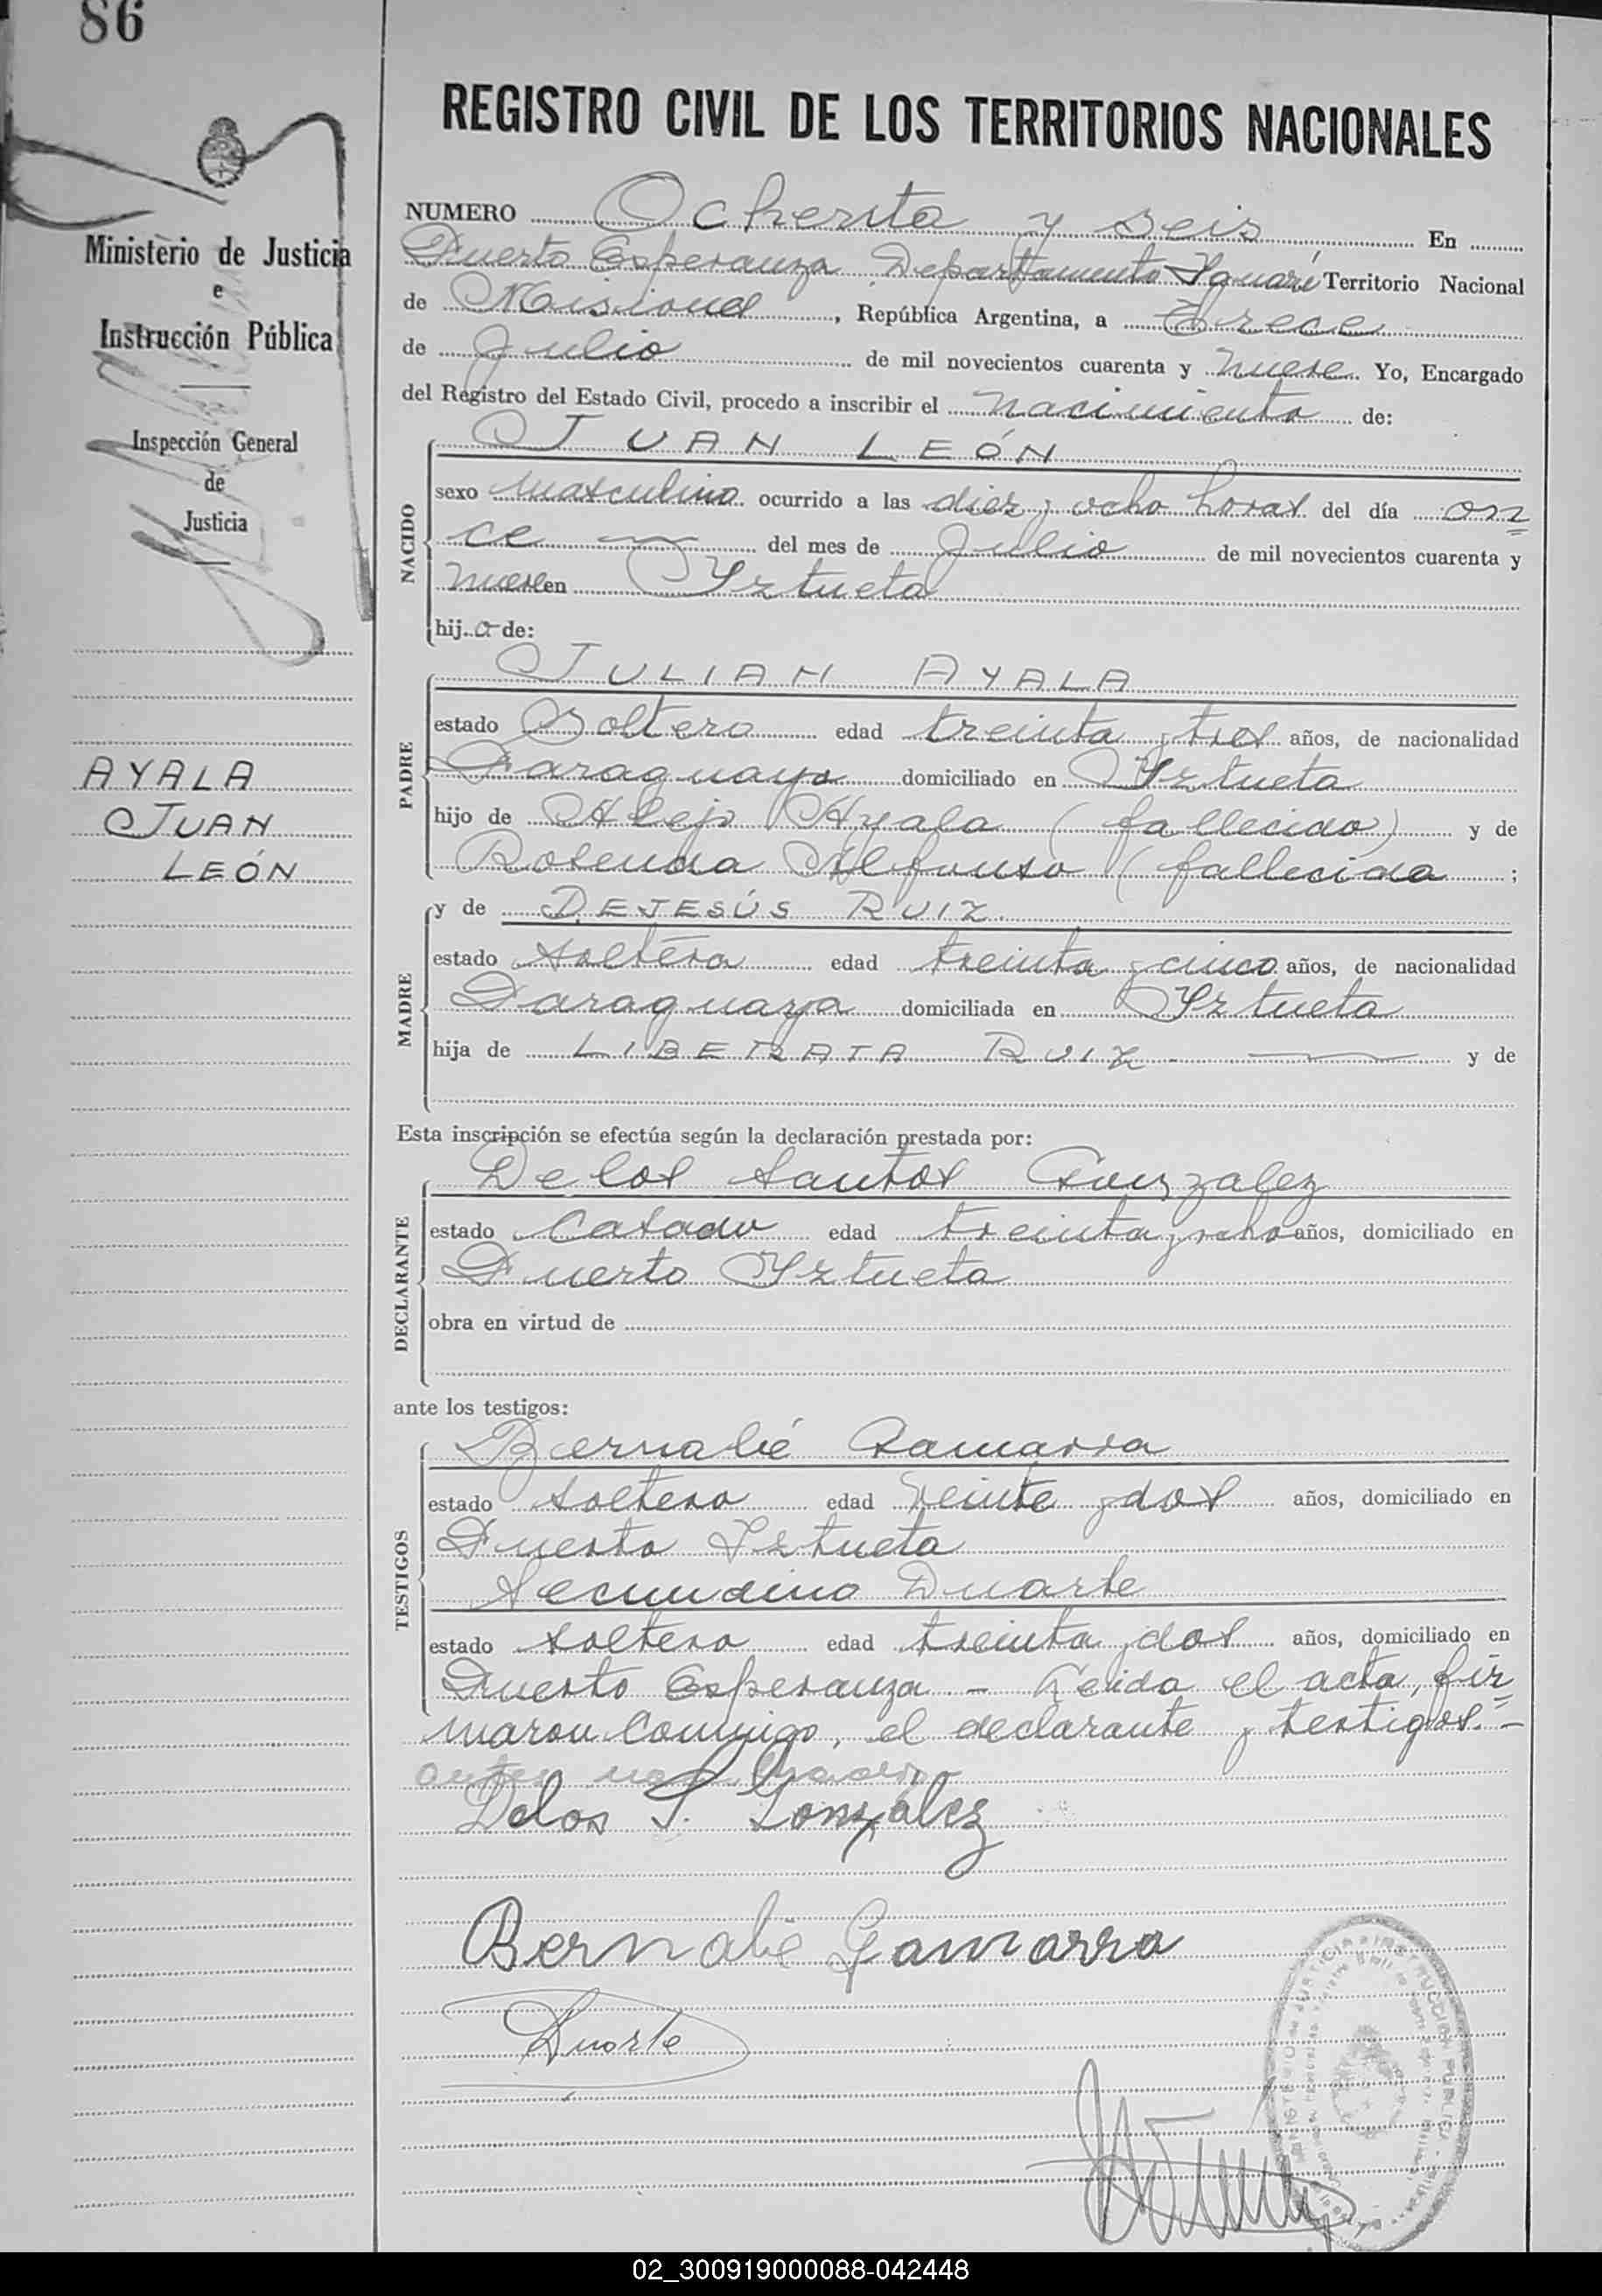 86
Ministerio de Justicia
e
Instrucción Pública
Inspección General
de
Justicia
AYALA
JUAN
LEÓN
REGISTRO CIVIL DE LOS TERRITORIOS NACIONALES
NUMERO Ochenta y seis En
Puerto Esperanza Departamento Iguazú Territorio Nacional
de Misiones, República Argentina, a Trece
de Julio de mil novecientos cuarenta y nueve Yo, Encargado
del Registro del Estado Civil, procedo a inscribir el nacimiento de:
JUAN LEÓN
NACIDO
sexo masculino ocurrido a las diez y ocho horas del día on=
ce del mes de Julio de mil novecientos cuarenta y
nueve en Yztueta
hijo de:
JULIAN AYALA
PADRE
estado Soltero edad treinta y tres años, de nacionalidad
Paraguayo domiciliado en Yztueta
hijo de Alejo Ayala (fallecido) y de
Rosenda Alfonso (fallecida ;
y de DEJESÚS RUIZ
MADRE
estado soltera edad treinta y cinco años, de nacionalidad
Paraguaya domiciliada en Yztueta
hija de LIBERATA RUIZ. y de
Esta inscripción se efectúa según la declaración prestada por:
De los Santos Gonzalez
DECLARANTE
estado Casado edad treinta y ocho años, domiciliado en
Puerto Yztueta
obra en virtud de
ante los testigos:
Bernabé Gamarra
TESTIGOS
estado soltero edad veinte y dos años, domiciliado en
Puerto Yztueta
Secundino Duarte
estado soltero edad treinta y dos años, domiciliado en
Puerto Esperanza - Leida el acta, fir=
maron conmigo, el declarante y testigos.-
Delos S. González
Bernabé Gamarra
Duarte
MINISTERIO DE JUSTICIA E INSTRUCCIÓN PUBLICA
02_300919000088-042448